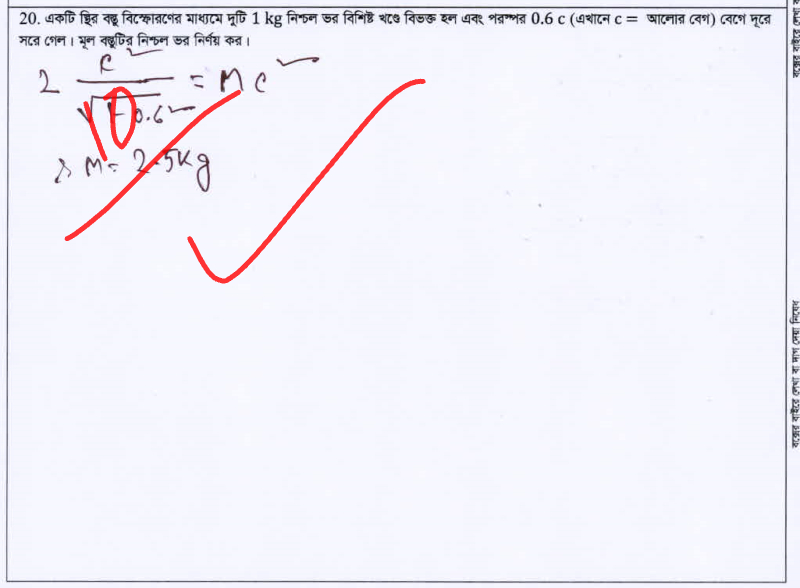 20. একটি স্থির বস্তু বিস্ফোরণের মাধ্যমে দুটি 1 kg নিশ্চল ভর বিশিষ্ট খণ্ডে বিভক্ত হল এবং পরস্পর 0.6 c (এখানে c = আলোর বেগ) বেগে দূরে
সরে গেল। মূল বস্তুটির নিশ্চল ভর নির্ণয় কর।
2 c²/√(1-0.6²) = Mc²
∴ M = 2.5kg
বক্সের বাইরে লেখা বা দাগ দেয়া নিষেধ